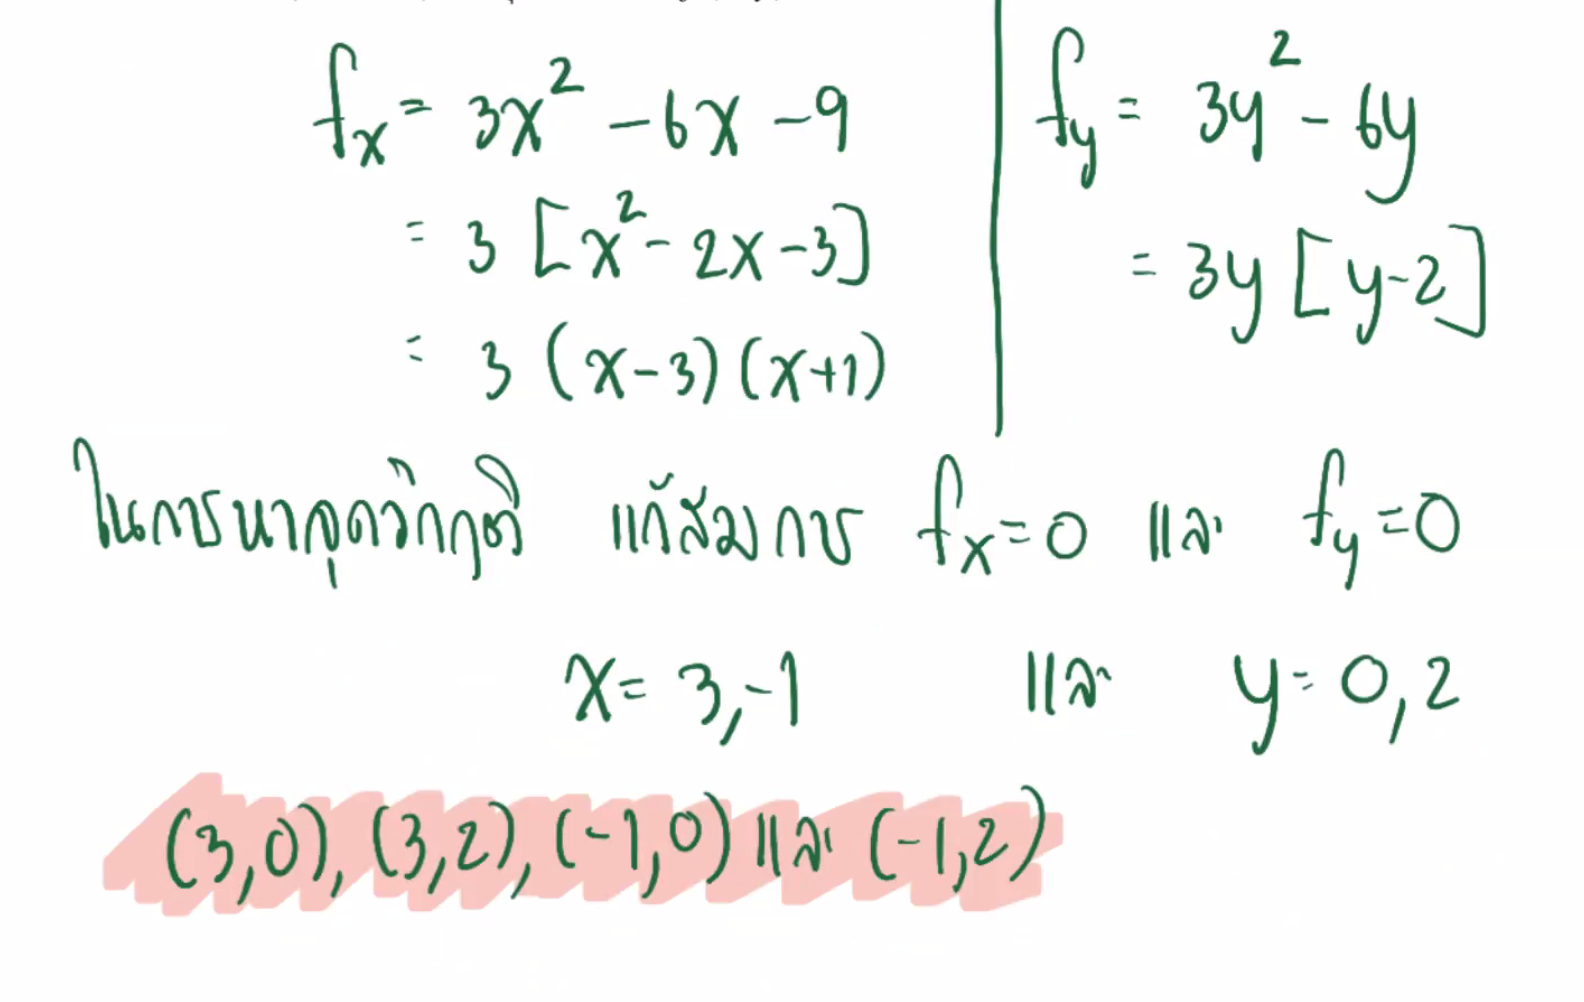 fx = 3x² - 6x - 9
= 3 [x² - 2x - 3]
= 3 (x-3) (x+1)
fy = 3y² - 6y
= 3y [y-2]
ในการหาจุดวิกฤติ แก้สมการ fx = 0 และ fy = 0
x = 3, -1 และ y = 0, 2
(3,0), (3,2), (-1,0) และ (-1,2)